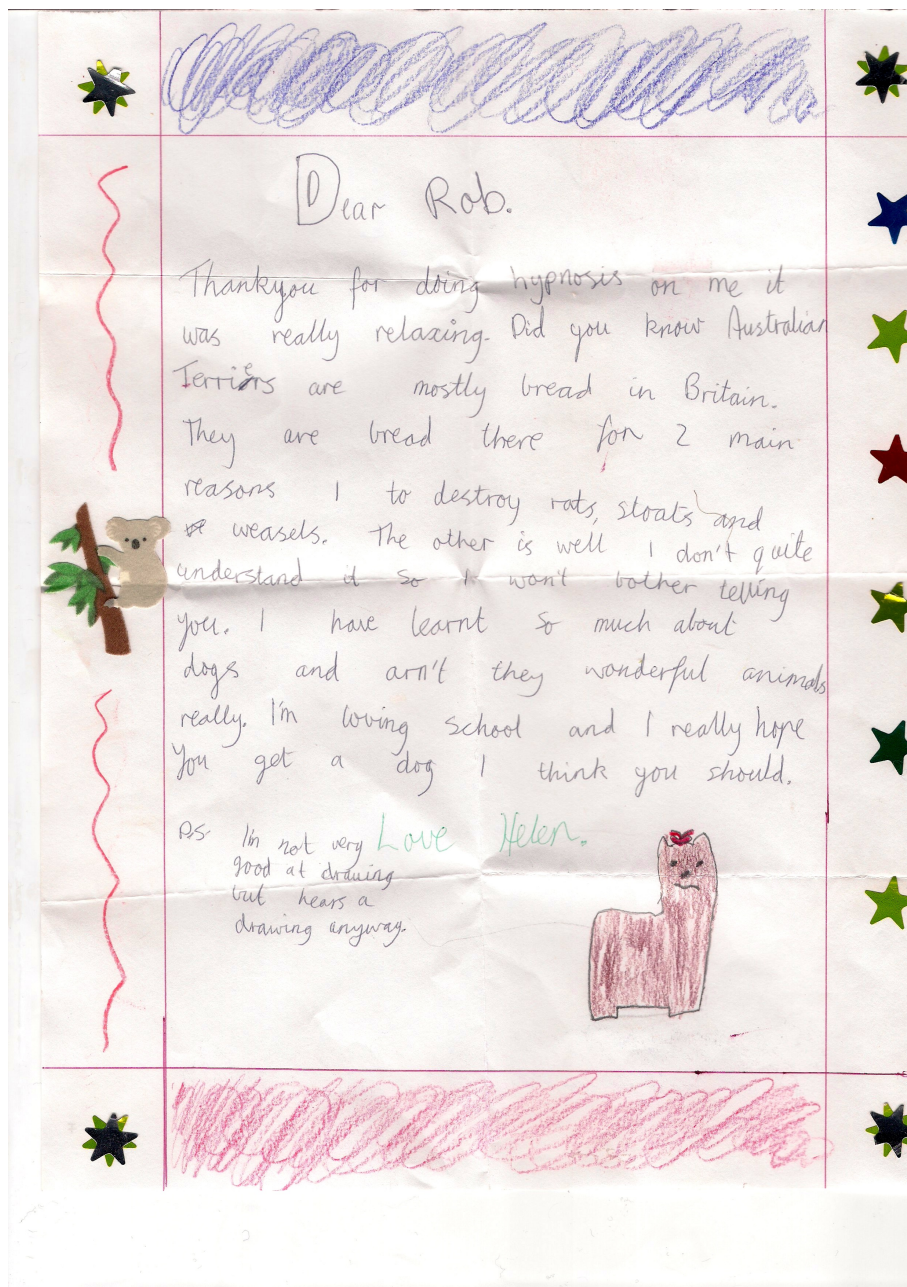 Dear Rob.
Thankyou for doing hypnosis on me it
was really relaxing. Did you know Australian
Terriers are mostly bread in Britain.
They are bread there for 2 main
reasons 1 to destroy rats, stoats and
weasels. The other is well I don't quite
understand it so I won't bother telling
you. I have learnt so much about
dogs and arn't they wonderful animals
really. I'm loving school and I really hope
You get a dog I think you should.
Love Helen.
P.S. I'm not very
good at drawing
but hears a
drawing anyway.